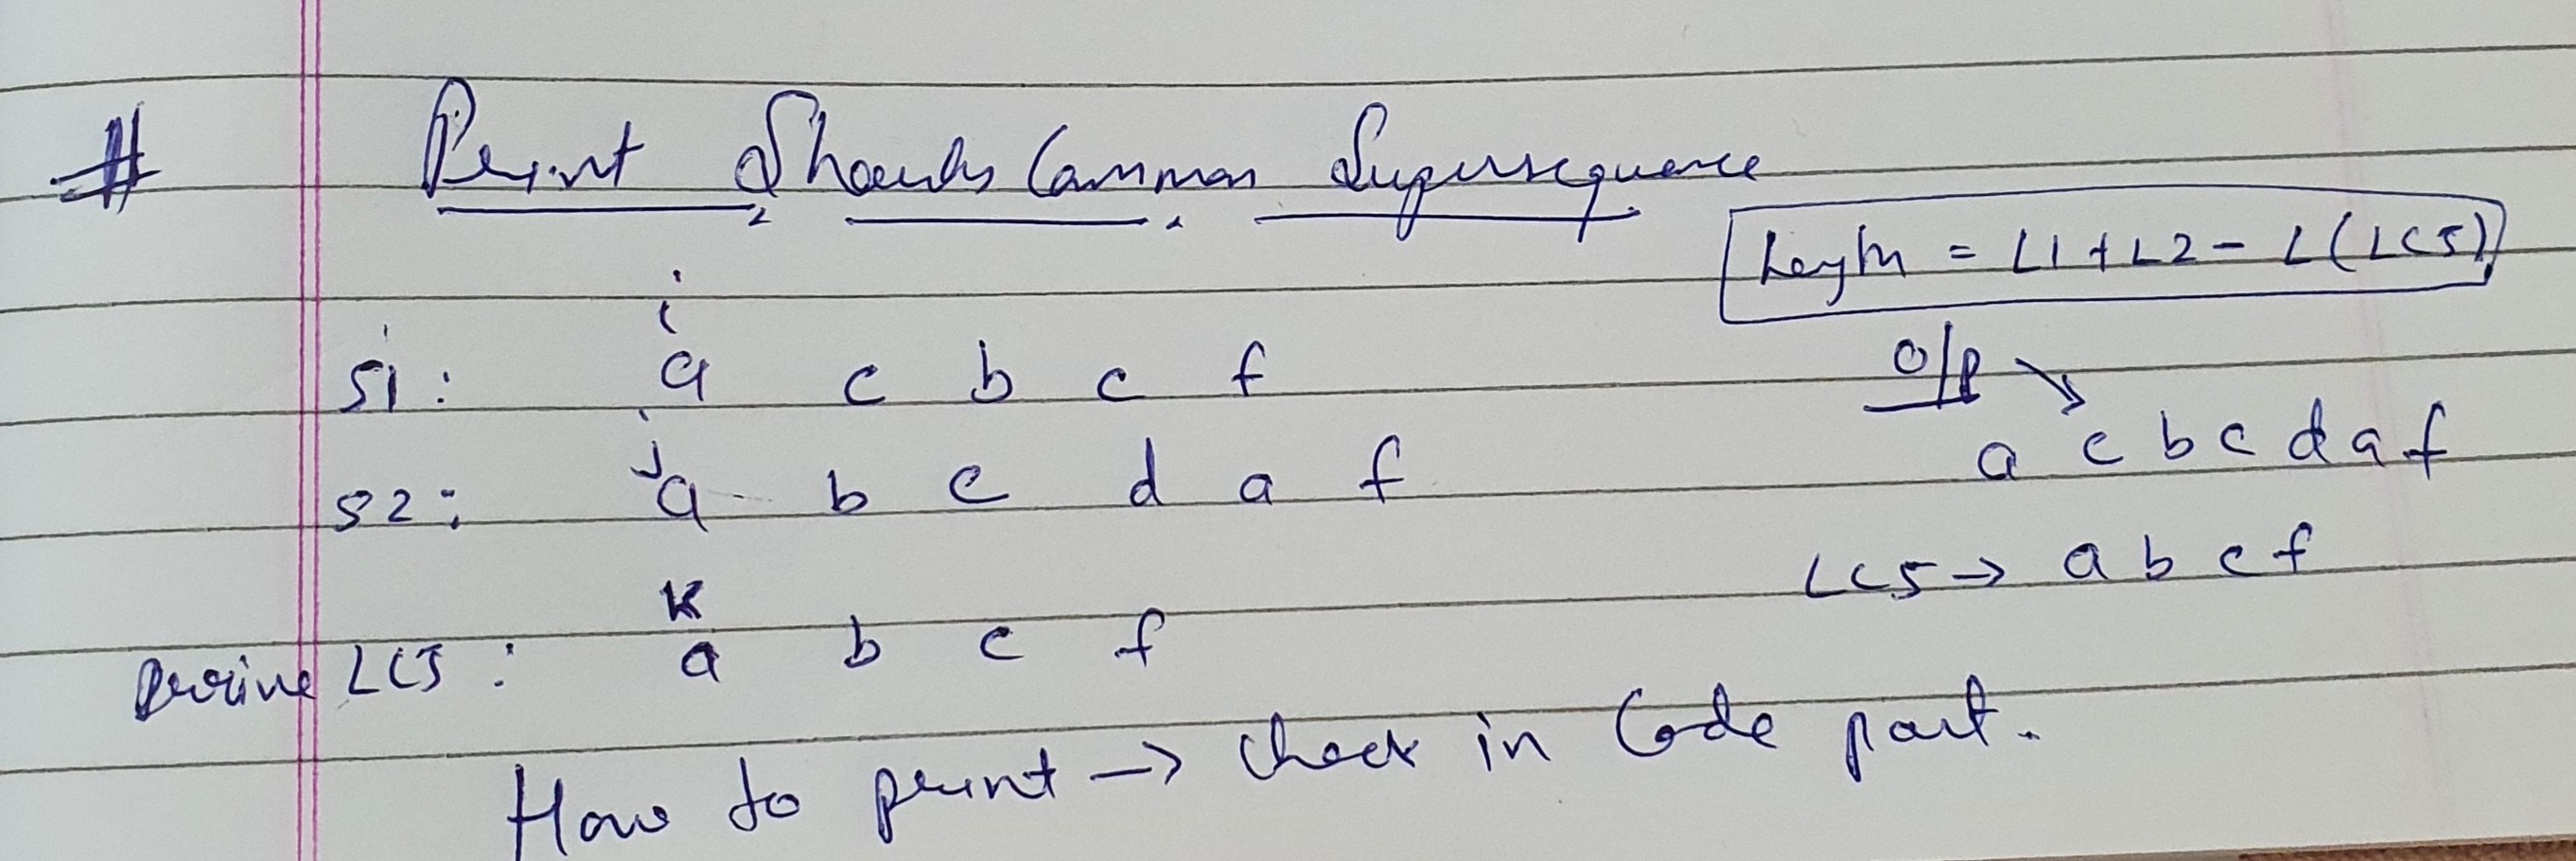 # Print Shortes Common Supersequence
Length = L1 + L2 - L(LCS)
i
S1: a c b c f
O/P ↘
a c b c d a f
j
S2: a b c d a f
LCS → a b c f
K
Derive LCS: a b c f
How to print → check in Code part.